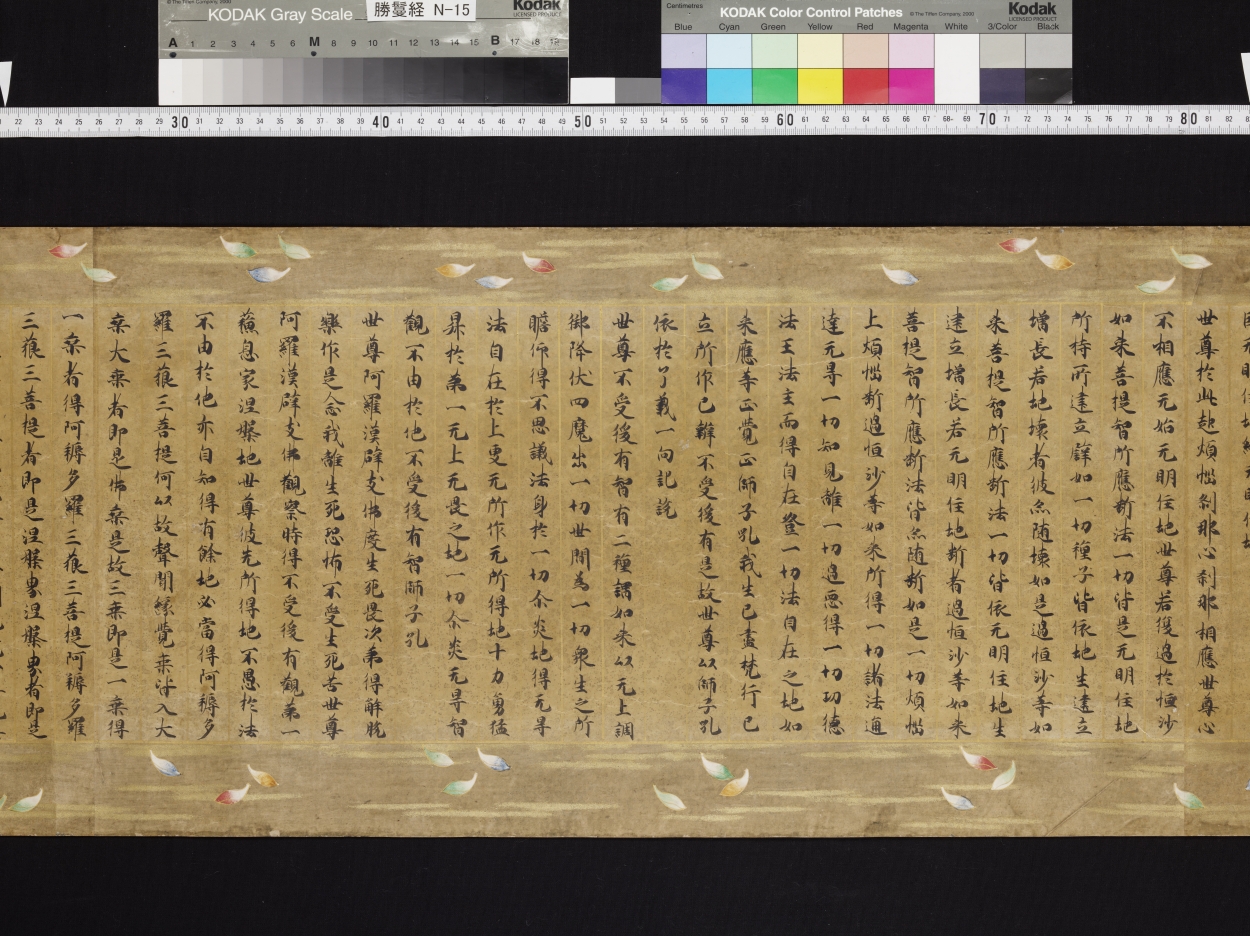 KODAK Gray Scale
勝鬘経 N-15
Kodak
LICENSED PRODUCT
© The Tiffen Company, 2000
A 1 2 3 4 5 6 M 8 9 10 11 12 13 14 15 B 17 18 19
Centimetres
KODAK Color Control Patches
© The Tiffen Company, 2000
Kodak
LICENSED PRODUCT
Blue Cyan Green Yellow Red Magenta White 3/Color Black
世尊於此起煩惱刹那心刹那相應世尊心
不相應无始无明住地世尊若復過於恒沙
如来菩提智所應斷法一切皆是无明住地
所持所建立譬如一切種子皆依地生建立
增長若地壞者彼亦隨壞如是過恒沙等如
来菩提智所應斷法一切皆依无明住地生
建立增長若无明住地斷者過恒沙等如来
菩提智所應斷法皆亦隨斷如是一切煩惱
上煩惱斷過恒沙等如来所得一切諸法通
達无㝵一切知見離一切過惡得一切功德
法王法主而得自在登一切法自在之地如
来應等正覺正師子吼我生已盡梵行已
立所作已辦不受後有是故世尊以師子吼
依於了義一向記說
世尊不受後有智有二種謂如来以无上調
御降伏四魔出一切世間為一切衆生之所
瞻仰得不思議法身於一切尒炎地得无㝵
法自在於上更无所作无所得地十力勇猛
昇於第一无上无畏之地一切尒炎无㝵智
觀不由於他不受後有智師子吼
世尊阿羅漢辟支佛度生死畏次第得解脫
樂作是念我離生死恐怖不受生死苦世尊
阿羅漢辟支佛觀察時得不受後有觀第一
蘇息處涅槃地世尊彼先所得地不愚於法
不由於他亦自知得有餘地必當得阿耨多
羅三藐三菩提何以故聲聞緣覺乘皆入大
乘大乘者即是佛乘是故三乘即是一乘得
一乘者得阿耨多羅三藐三菩提阿耨多羅
三藐三菩提者即是涅槃界涅槃界者即是